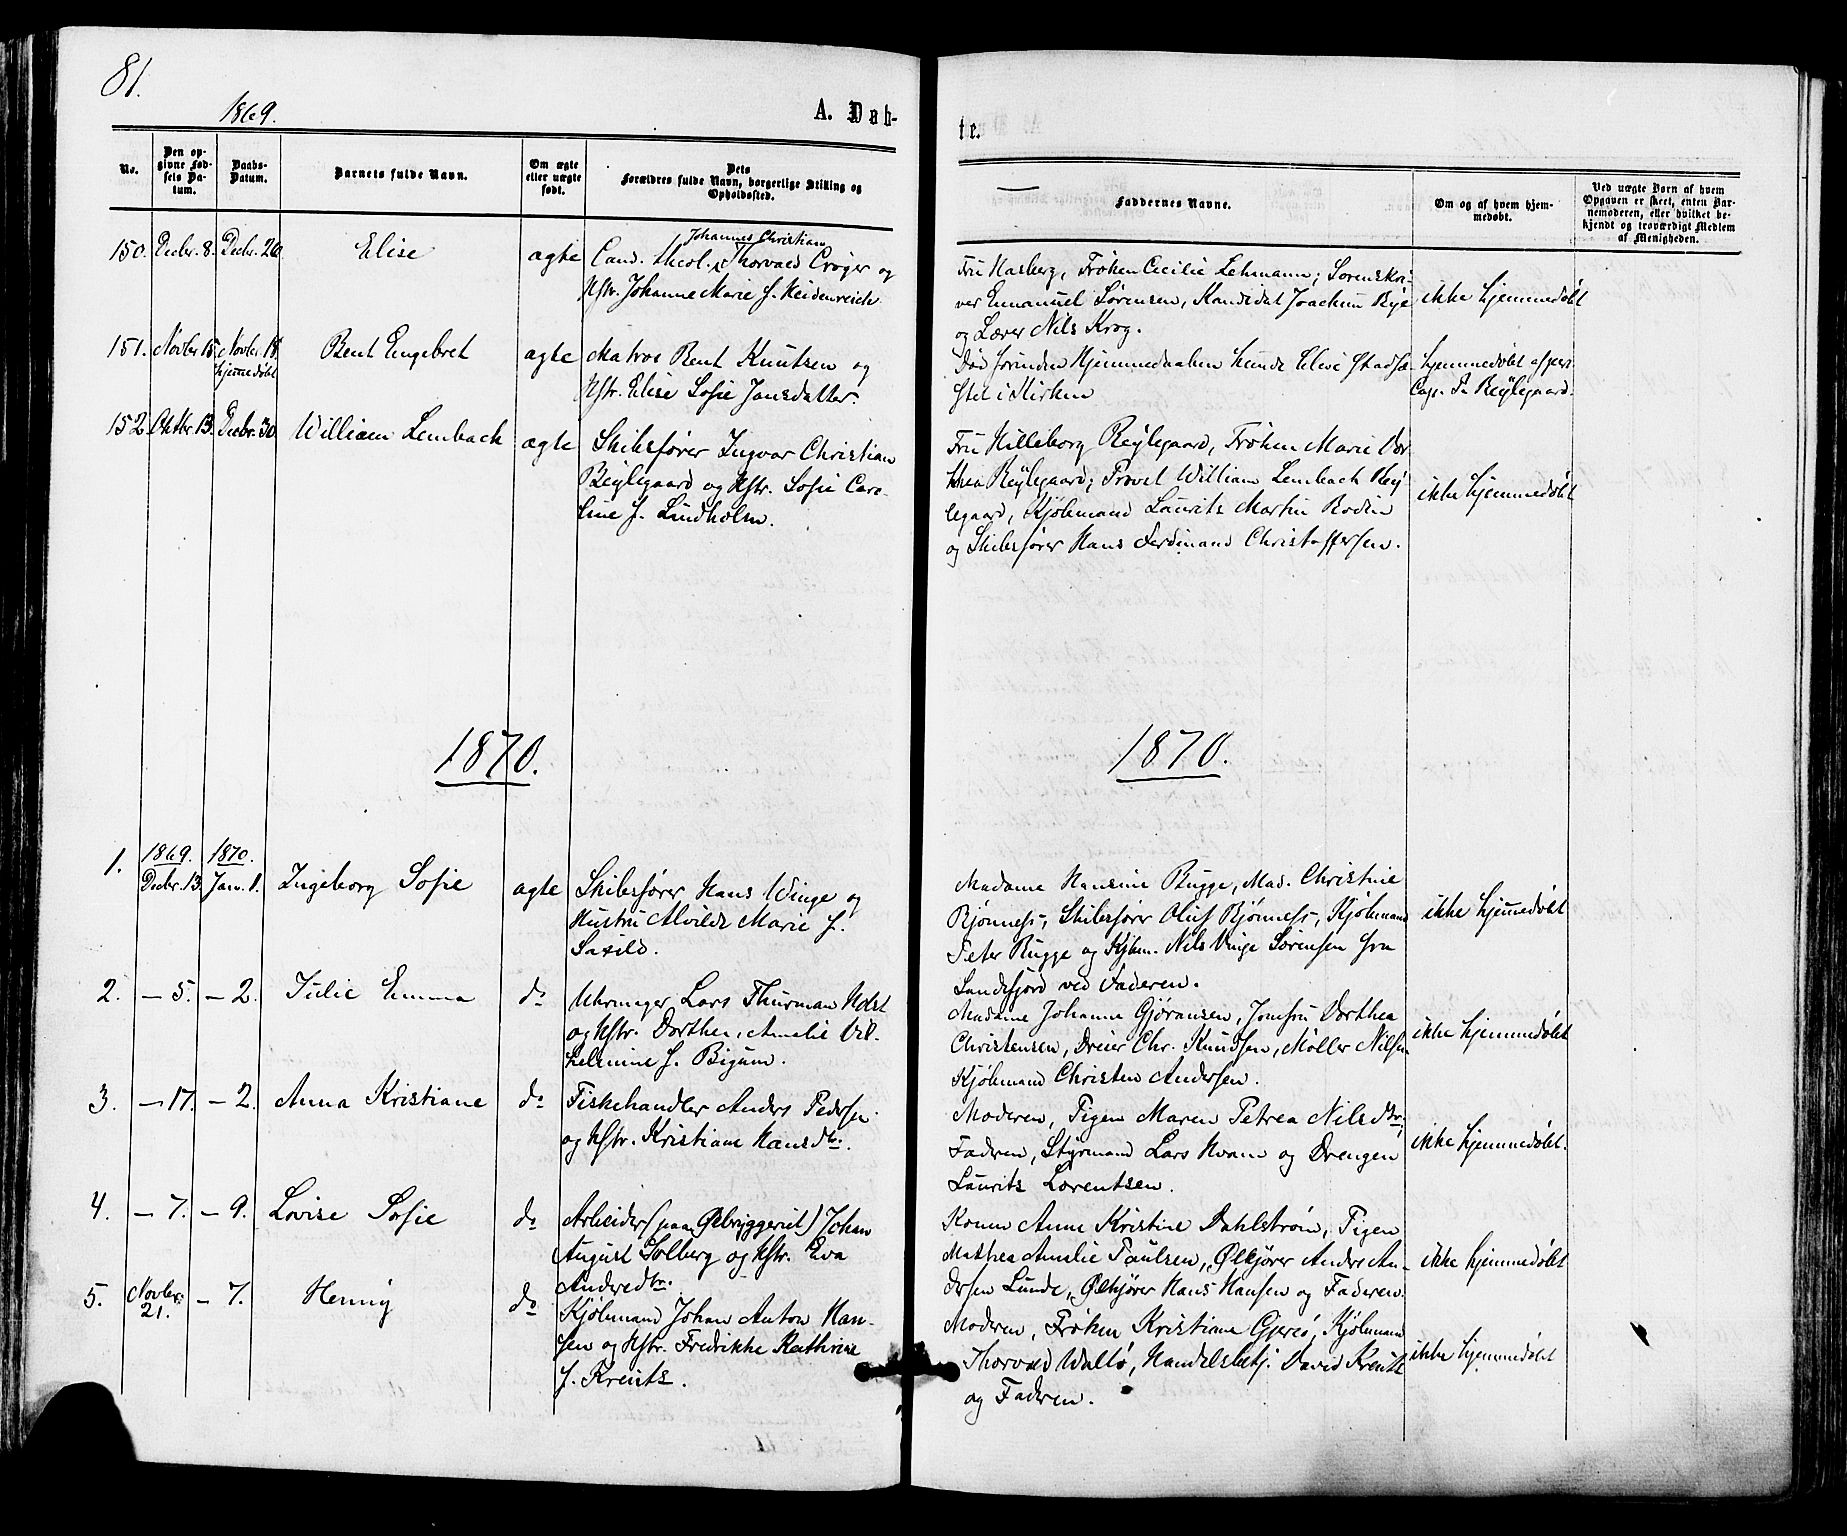 81.
1869.
A. Døb-
te.
No.
Den op-
givne Fød-
sels Da-
tum.
Daabs-
Datum.
Barnets fulde Navn.
Om ægte
eller uægte
født.
Dets
Forældres fulde Navn, borgerlige Stilling og
Opholdssted.
Faddernes Navne.
Om og af hvem hjem-
medøbt.
Ved uægte Børn af hvem
Opgaven er skeet, enten Bar-
nemoderen, eller hvilket be-
kjendt og troværdigt Medlem
af Menigheden.
150. Decbr. 8. Decbr. 26 Elise ægte
Johannes Christian
Cand. theol. Thorvald Crøger og
Hstr. Johanne Marie f. Heidenreich.
Fru Harberg, Frøken Cecilie Lehmann; Sorenskri-
ver Emmanuel Sørensen, Kandidat Joachum Bye
og Lærer Nils Krog.
ikke hjemmedøbt
151. Novbr. 15. Novbr. 15.
hjemmedøbt
Bent Engebret ægte
Matros Bent Knutsen og
Hstr. Elise Sofie Jansdatter.
Død forinden Hjemmedaaben kunde blive stadfæ-
stet i Kirken
hjemmedøbt af pers.
Cap. P. Bøylegaard.
152. Oktbr. 13. Decbr. 30. William Lembach ægte
Skibsfører Ingvar Christian
Bøylegaard og Hstr. Sofie Caro-
line f. Lindholm.
Fru Hilleborg Bøylegaard, Frøken Marie Dor-
thea Bøylegaard; Provst William Lembach Bøy-
legaard, Kjøbmand Laurits Martin Bodin
og Skibsfører Hans Ferdinand Christoffersen.
ikke hjemmedøbt
1870.
1870.
1. 1869. 1870.
Decbr. 13. Janv. 1. Ingeborg Sofie ægte
Skibsfører Hans Winge og
Hustru Alvilde Marie f.
Saxild.
Madame Hansine Bugge, Mad. Christine
Bjønness, Skibsfører Oluf Bjønness, Kjøbmand
Peter Bugge og Kjbm. Nils Vinge Sørensen fra
Sandefjord ved Faderen.
ikke hjemmedøbt
2. – 5. – 2. Julie Emma do
Uhrmager Lars Thurman Holst
og Hstr. Dorthea Amalie Vil-
helmine f. Bigum.
Madame Johanne Gjøransen, Jomfru Dorthea
Christensen, Dreier Chr. Knudsen, Møller Nilsen
Kjøbmand Christen Andersen.
ikke hjemmedøbt
3. – 17. – 2. Anna Kristiane do
Fiskehandler Anders Pedersen
og Hstr. Kristiane Hansdtr.
Moderen, Pigen Maren Petrea Nilsdtr.;
Faderen, Styrmand Lars Hvam og Drengen
Laurits Lorentsen.
ikke hjemmedøbt.
4. – 7. – 9. Lovise Sofie do
Arbeider (paa Ølbryggeriet) Johan
August Solberg og Hstr. Eva
Andersdtr.
Konen Anne Kristine Dahlstrøm, Pigen
Mathea Amalie Paulsen, Ølkjører Anders An-
dersen Lunde, Ølkjører Hans Hansen og Faderen.
ikke hjemmedøbt
5. Novbr.
21. – 7. Henny do
Kjøbmand Johan Anton Han-
sen og Hstr. Fredrikke Kathrine
f. Kreutz.
Moderen, Frøken Kristiane Gjersø, Kjøbmand
Thorvald Waltø, Handelsbetj. David Kreutz
og Faderen.
ikke hjemmedøbt